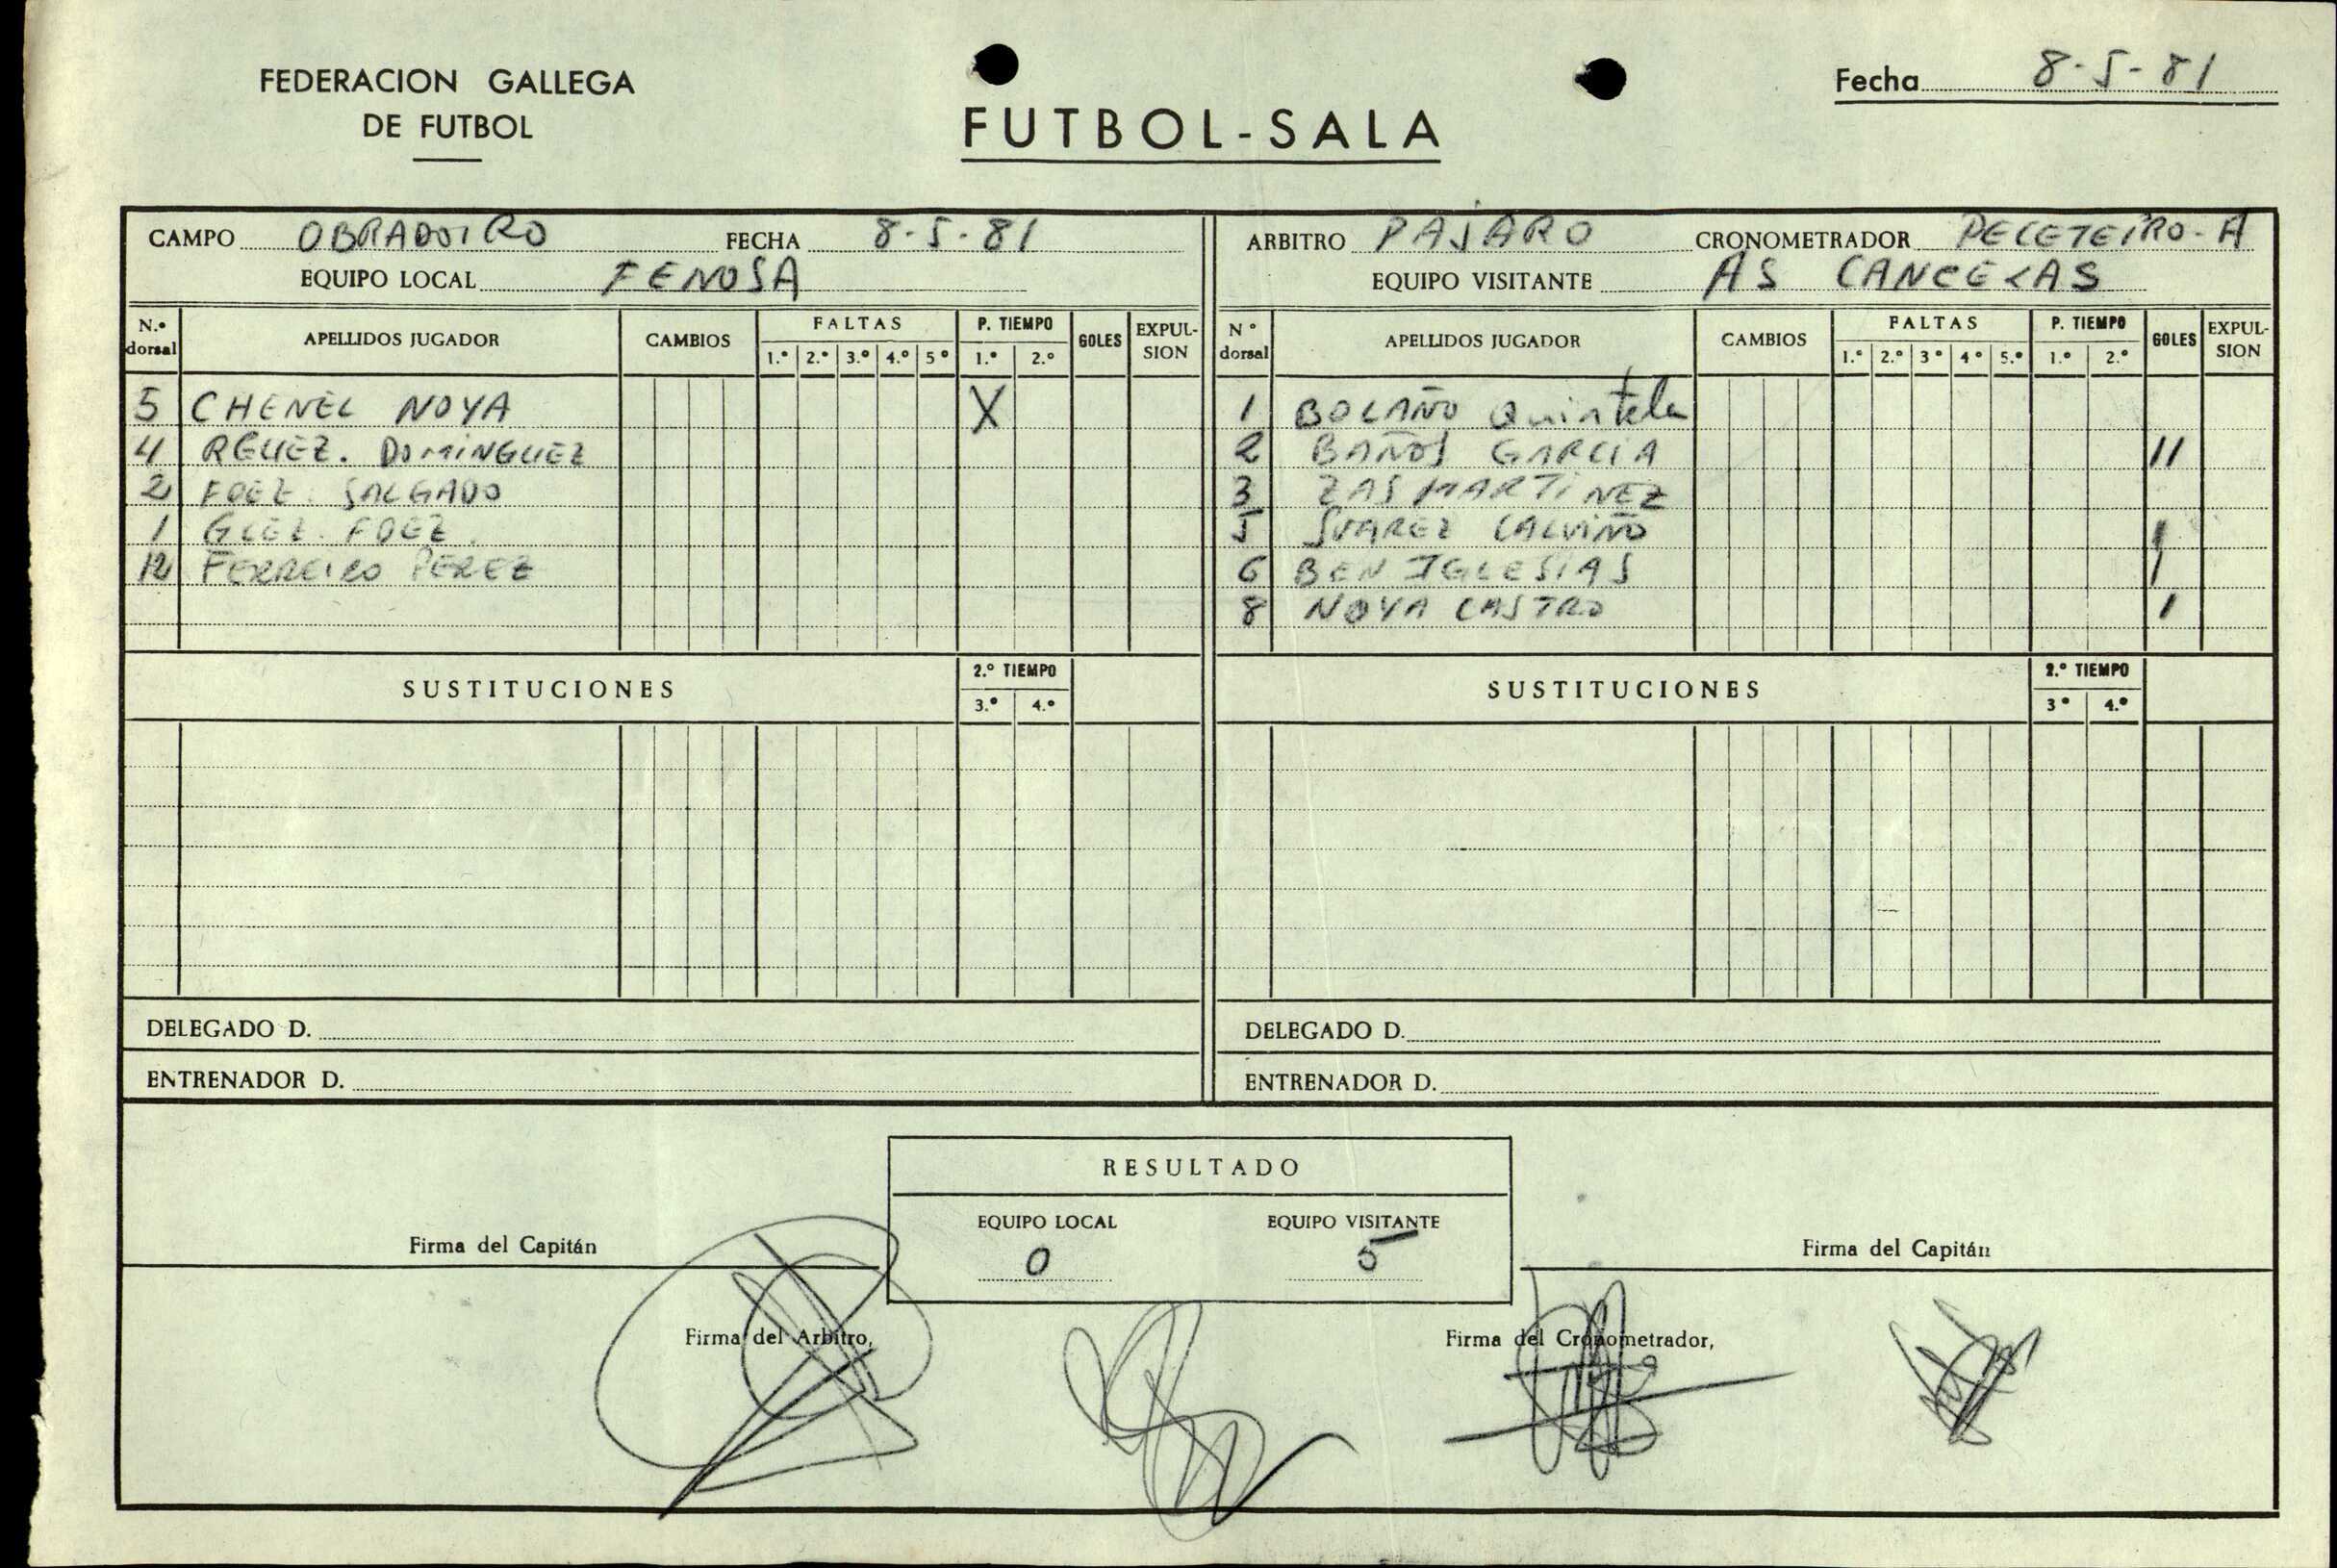 FEDERACION GALLEGA
DE FUTBOL
FUTBOL-SALA
Fecha 8-5-81
CAMPO OBRADOIRO FECHA 8-5-81
EQUIPO LOCAL FENOSA
N.º dorsal APELLIDOS JUGADOR CAMBIOS FALTAS 1.ª 2.ª 3.ª 4.ª 5ª P. TIEMPO 1.º 2.º GOLES EXPUL-SION
5 CHENEL NOYA X
4 RGUEZ. DOMINGUEZ
2 FDEZ. SALGADO
1 GLEZ. FDEZ.
12 FERREIRO PEREZ
SUSTITUCIONES 2.º TIEMPO
3.º 4.º
DELEGADO D.
ENTRENADOR D.
ARBITRO PAJARO CRONOMETRADOR PELETEIRO-A
EQUIPO VISITANTE AS CANCELAS
Nº dorsal APELLIDOS JUGADOR CAMBIOS FALTAS 1.ª 2.ª 3ª 4ª 5.ª P. TIEMPO 1.º 2.º GOLES EXPUL-SION
1 BOLAÑO Quintela
2 BAÑOS GARCIA II
3 ZAS MARTINEZ
5 SUAREZ CALVIÑO I
6 BEN IGLESIAS I
8 NOYA CASTRO I
SUSTITUCIONES 2.º TIEMPO
3º 4.º
DELEGADO D.
ENTRENADOR D.
RESULTADO
EQUIPO LOCAL EQUIPO VISITANTE
0 5
Firma del Capitán
Firma del Capitán
Firma del Arbitro,
Firma del Cronometrador,